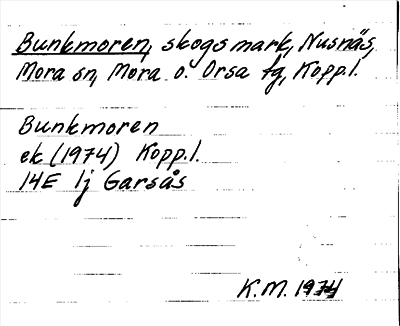 Bunkmoren, skogsmark, Nusnäs,
Mora sn, Mora o. Orsa tg, Kopp.l.
Bunkmoren
ek (1974) Kopp.l.
14E 1j Garsås
K.M. 1974